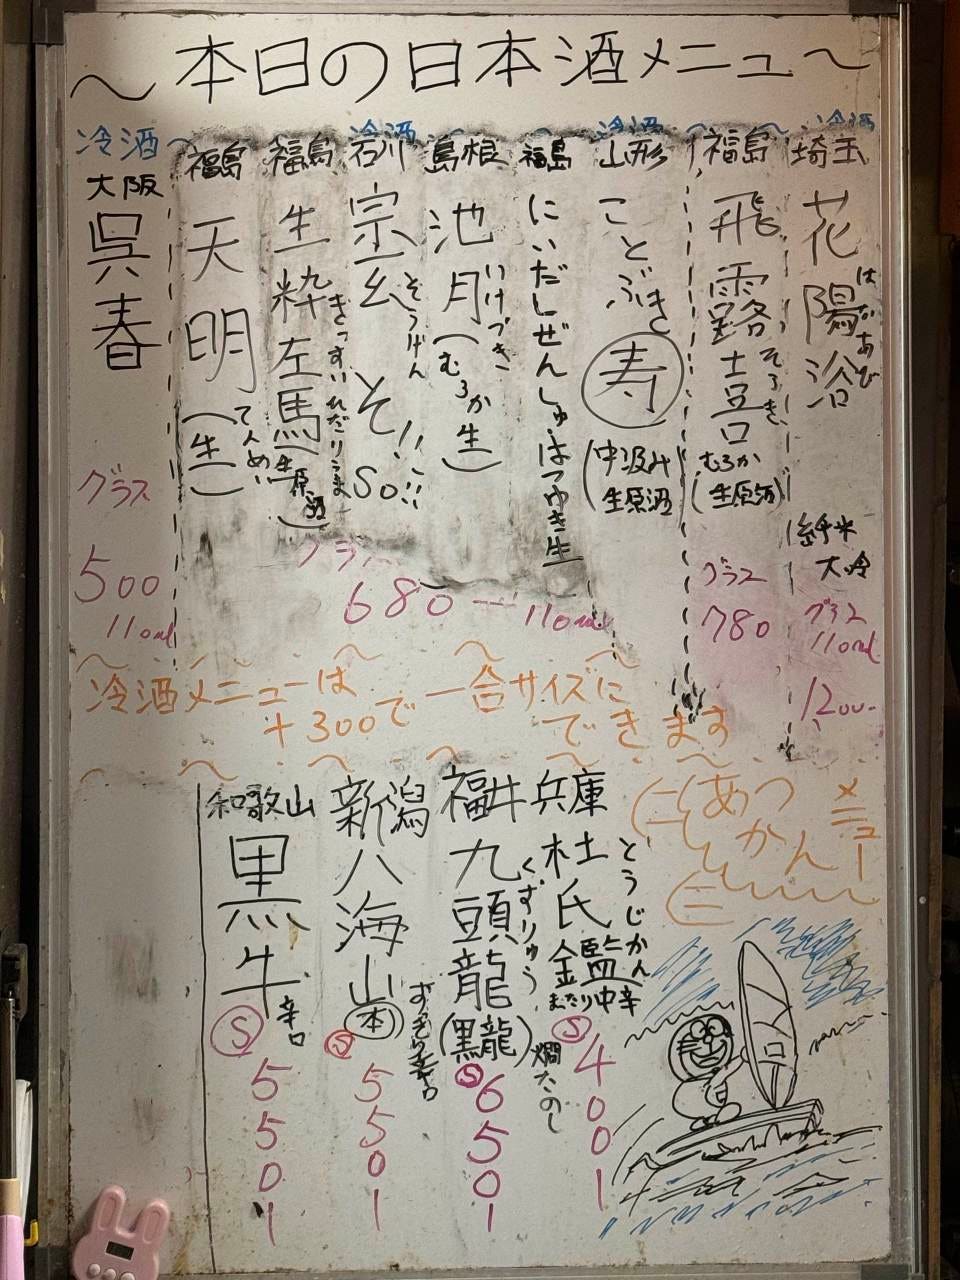 〜本日の日本酒メニュー〜
冷酒
冷酒
冷酒
冷酒
埼玉
花陽浴
はなあび
純米
大吟
グラス
110ml
1200-
福島
飛露
むろか
(生原酒)
グラス
780
山形
ことぶき
寿
(中汲み
生原酒)
福島
にいだしぜんしゅはつゆき生
島根
池月(むろか生)
いけづき
石川
宗玄
そうげん
そ!
So!!
福島
生粋左馬
きっすいひだりうま
(生原酒)
福島
天明(生)
てんめい
グラス
680ー
110ml
大阪
呉春
グラス
500
110ml
冷酒メニューは
+300で一合サイズに
できます
あつ
かん
メニュー
兵庫
杜氏鑑
とうじかん
またり中辛
S 400ー
福井
九頭龍
くずりゅう
(黒龍)
燗たのし
S 650ー
新潟
八海山
本
S 550ー
和歌山
黒牛
辛口
S 550ー